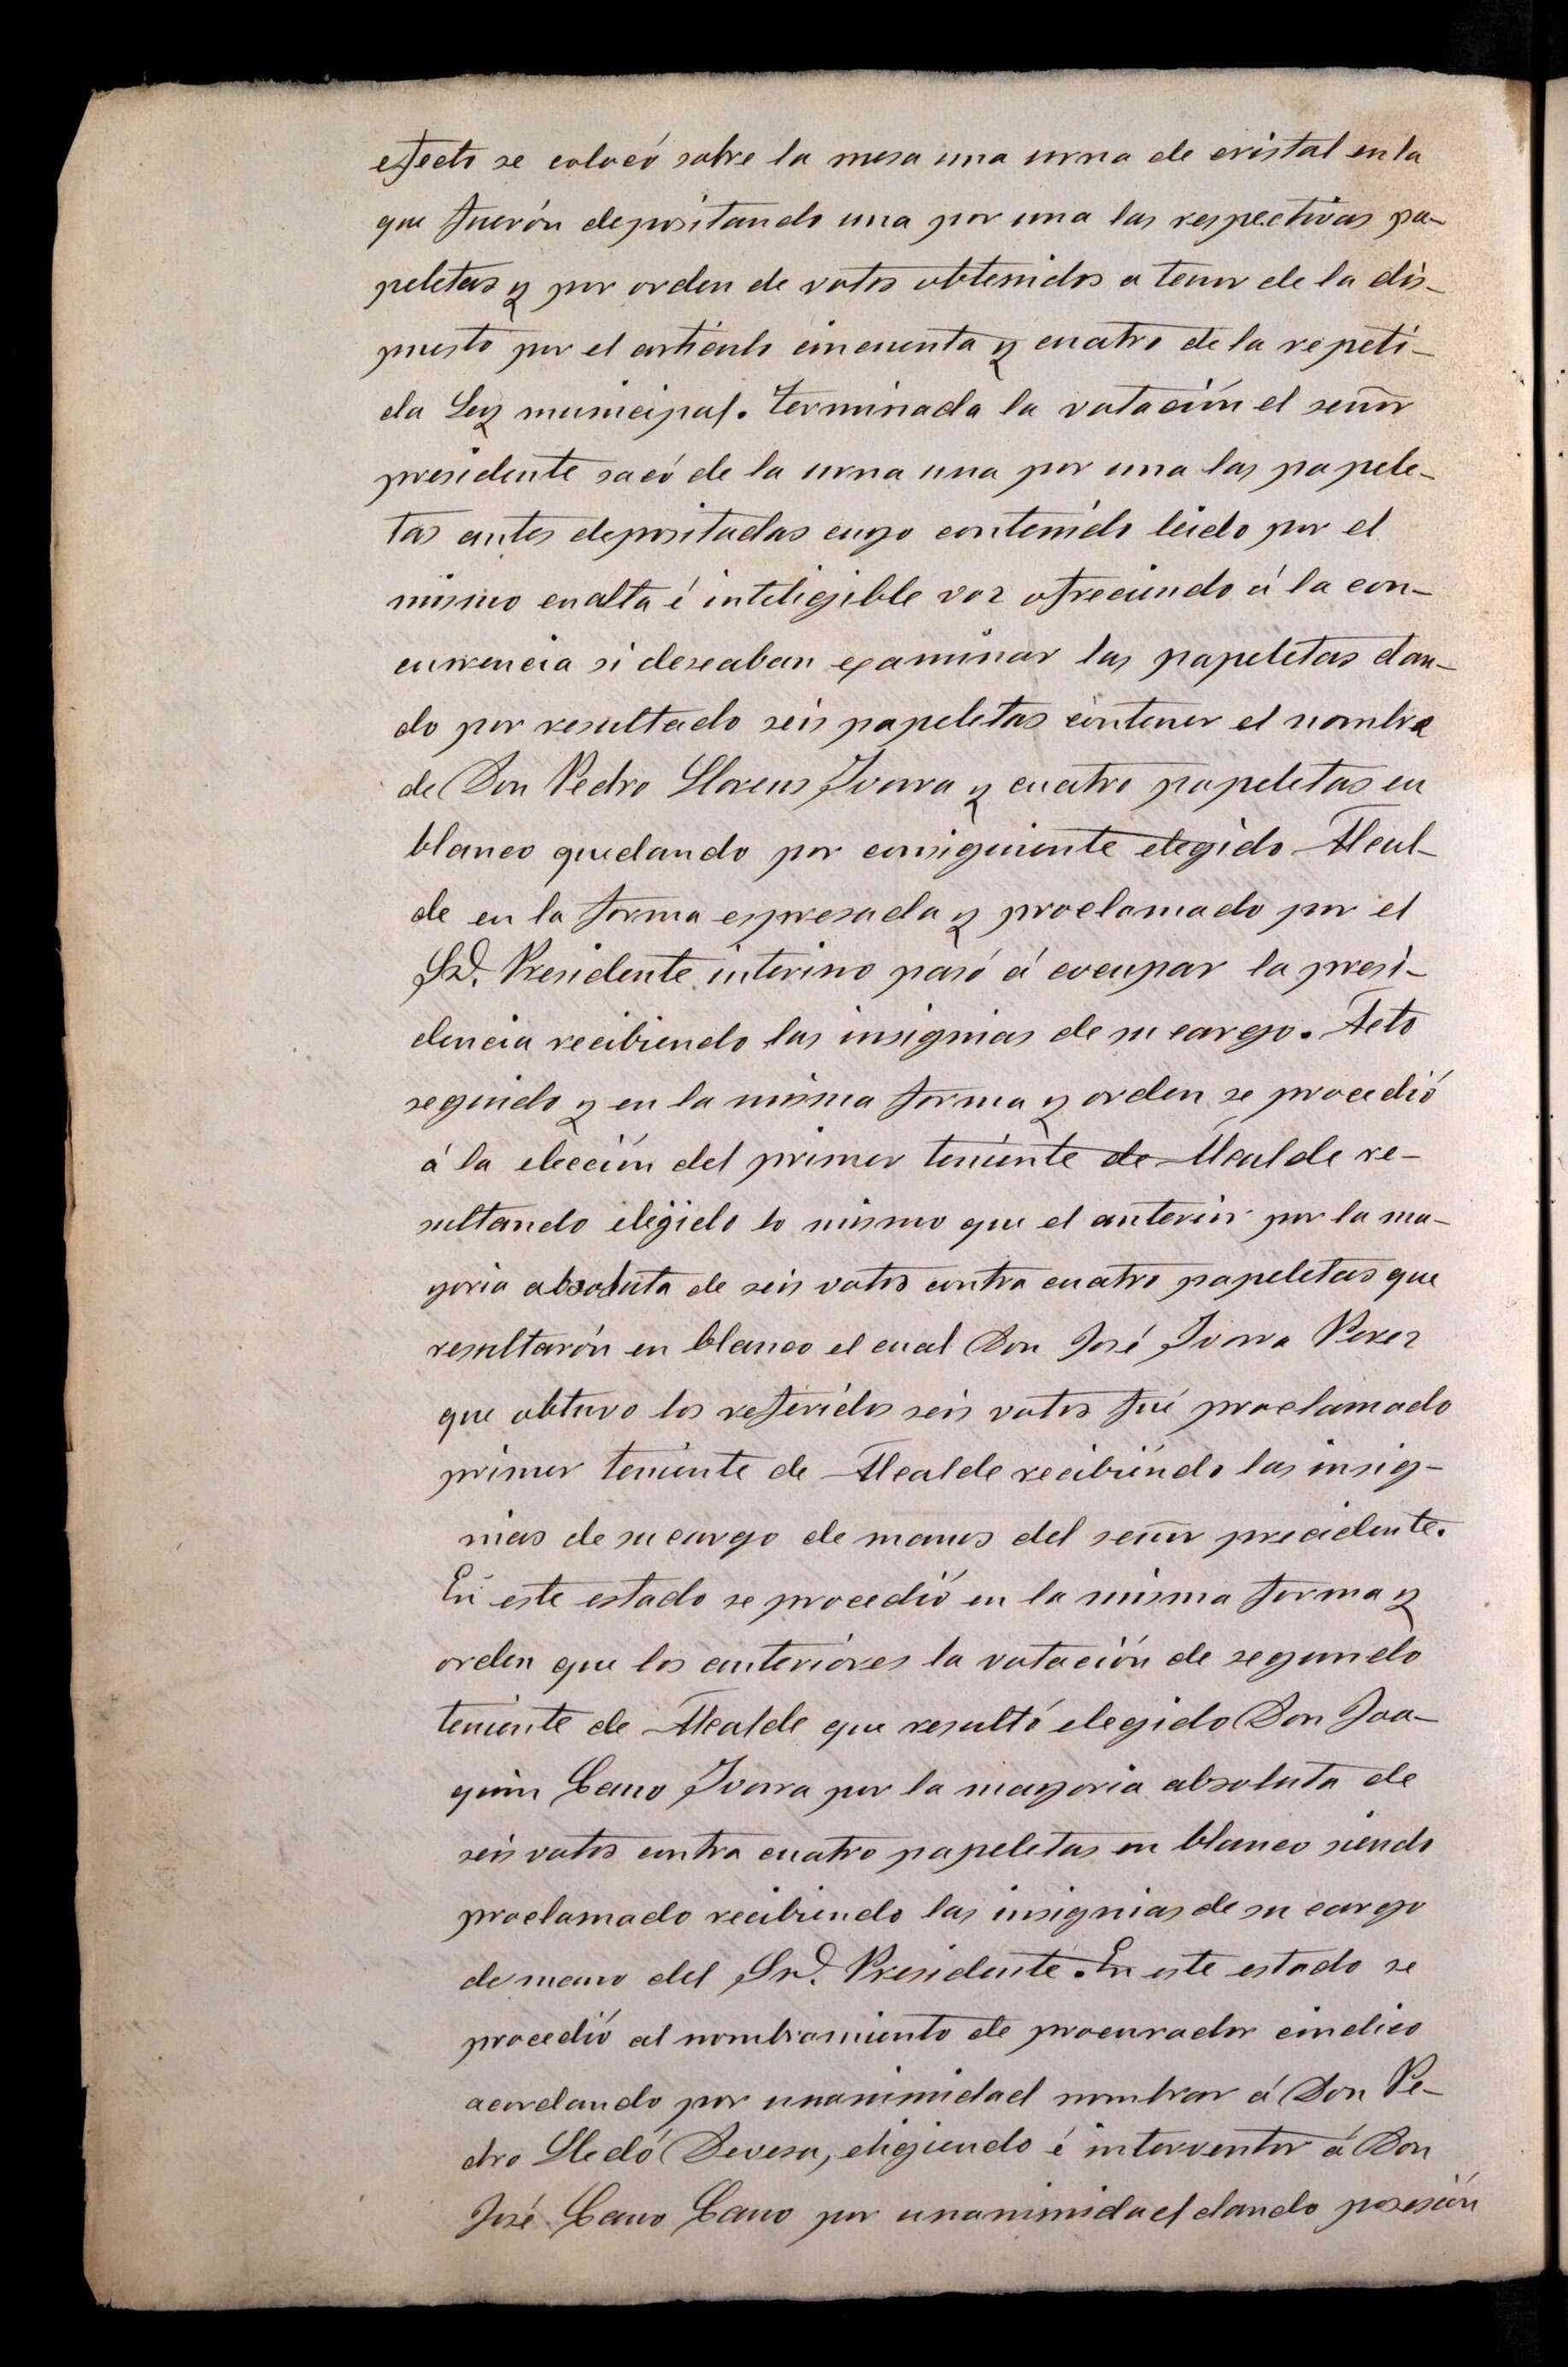 efecto se colocó sobre la mesa una urna de cristal en la
que fuerón depositando una por una las respectivas pa-
peletas y por orden de votos obtenidos a tenor de la dis-
puesto por el articulo cincuenta y cuatro de la repeti-
da Ley municipal. Terminada la votación el señor
presidente sacó de la urna una por una las papele-
tas antes depositadas cuyo contenido leido por el
mismo en alta é inteligible voz ofreciendo á la con-
currencia si deseaban examinar las papeletas dan-
do por resultado seis papeletas contener el nombre
de Don Pedro Llorens Ivorra y cuatro papeletas en
blanco quedando por consiguiente elegido Alcal-
de en la forma espresada y proclamado por el
Sr. Presidente interino pasó á ocupar la presi-
dencia recibiendo las insignias de su cargo. Acto
seguido y en la misma forma y orden se procedió
á la elección del primer teniente de Alcalde re-
sultando elejido lo mismo que el anterior por la ma-
yoria absoluta de seis votos contra cuatro papeletas que
resultarón en blanco el cual Don José Ivorra Perez
que obtuvo los referidos seis votos fué proclamado
primer teniente de Alcalde recibiendo las insig-
nias de su cargo de manos del señor precidente.
En este estado se procedió en la misma forma y
orden que los anteriores la votación de segundo
teniente de Alcalde que resultó elegido Don Joa-
quin Cano Ivorra por la mayoria absoluta de
seis votos contra cuatro papeletas en blanco siendo
proclamado recibiendo las insignias de su cargo
de mano del Sr. Presidente. En este estado se
procedió al nombramiento de procurador cindico
acordando por unanimidad nombrar á Don Pe-
dro Lledó Devesa, eligiendo é interventor á Don
José Cano Cano por unanimidad dando posesión